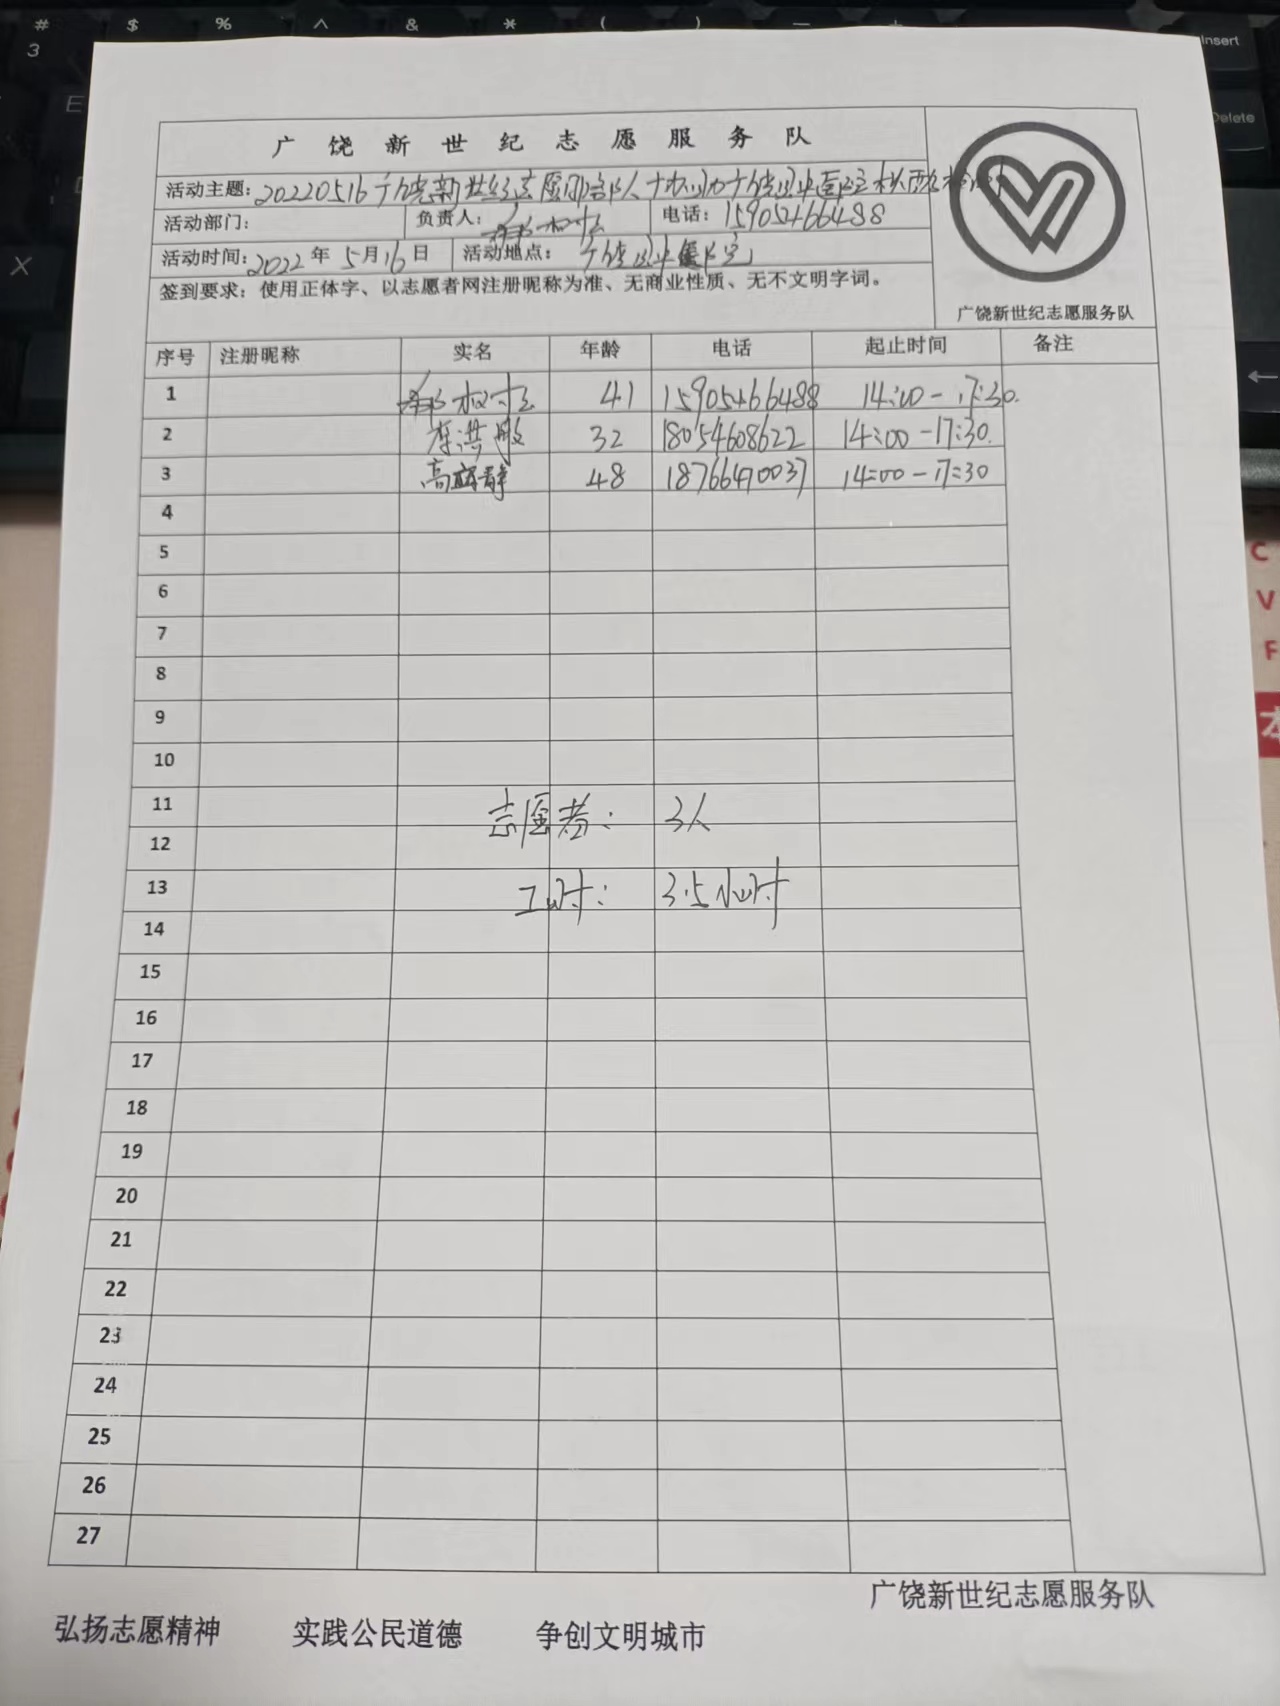 # $ % ^ & * ( )
3 Insert
E Delete
X
广饶新世纪志愿服务队
活动主题：20220516广饶新世纪志愿服务队 协助广饶县中医院核酸检测
活动部门： 负责人： 电话：15905466488
活动时间：2022年5月16日 活动地点：广饶县中医院
签到要求：使用正体字、以志愿者网注册昵称为准、无商业性质、无不文明字词。
广饶新世纪志愿服务队
序号 注册昵称 实名 年龄 电话 起止时间 备注
1 41 15905466488 14:00-17:30.
2 李洪敏 32 18054608622 14:00-17:30.
3 高静 48 18766470037 14:00-17:30
4
5
6
7
8
9
10
11
志愿者： 3人
12
13 工时： 3.5小时
14
15
16
17
18
19
20
21
22
23
24
25
26
27
广饶新世纪志愿服务队
弘扬志愿精神 实践公民道德 争创文明城市
C
V
F
本